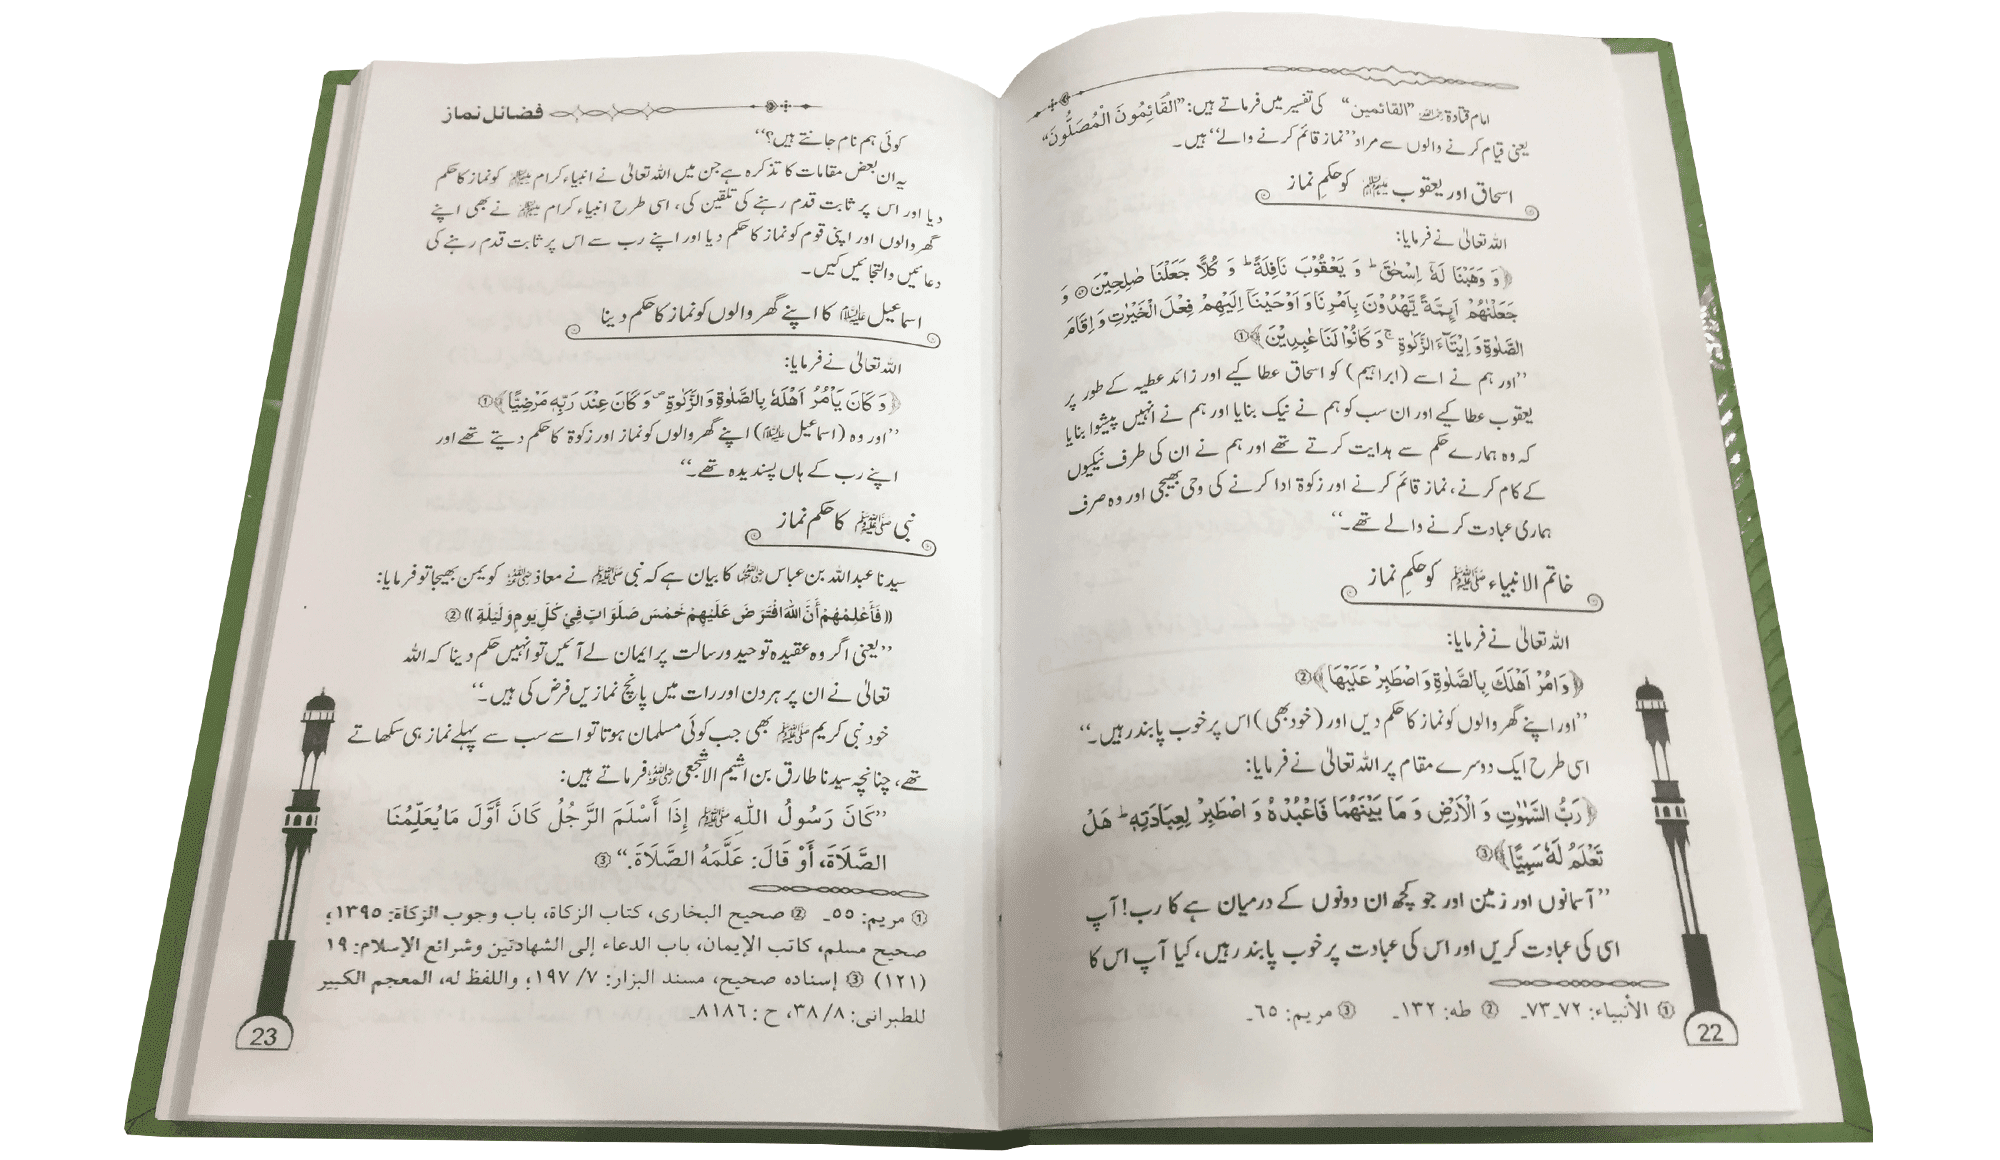 امام قتادة رحمہ اللہ ”القائمین“ کی تفسیر میں فرماتے ہیں: ”الْقَائِمُونَ الْمُصَلُّونَ“
یعنی قیام کرنے والوں سے مراد ”نماز قائم کرنے والے“ ہیں۔
اسحاق اور یعقوب علیہما السلام کو حکمِ نماز
اللہ تعالیٰ نے فرمایا:
﴿وَ وَهَبْنَا لَهٗۤ اِسْحٰقَ ؕ وَ يَعْقُوْبَ نَافِلَةً ؕ وَ كُلًّا جَعَلْنَا صٰلِحِيْنَ ۝ وَ
جَعَلْنٰهُمْ اَىِٕمَّةً يَّهْدُوْنَ بِاَمْرِنَا وَ اَوْحَيْنَاۤ اِلَيْهِمْ فِعْلَ الْخَيْرٰتِ وَ اِقَامَ
الصَّلٰوةِ وَ اِيْتَآءَ الزَّكٰوةِ ۚ وَ كَانُوْا لَنَا عٰبِدِيْنَ﴾ ①
”اور ہم نے اسے (ابراہیم) کو اسحاق عطا کیے اور زائد عطیہ کے طور پر
یعقوب عطا کیے اور ان سب کو ہم نے نیک بنایا اور ہم نے انہیں پیشوا بنایا
کہ وہ ہمارے حکم سے ہدایت کرتے تھے اور ہم نے ان کی طرف نیکیوں
کے کام کرنے، نماز قائم کرنے اور زکوۃ ادا کرنے کی وحی بھیجی اور وہ صرف
ہماری عبادت کرنے والے تھے۔“
خاتم الانبیاء ﷺ کو حکمِ نماز
اللہ تعالیٰ نے فرمایا:
﴿وَ اْمُرْ اَهْلَكَ بِالصَّلٰوةِ وَ اصْطَبِرْ عَلَيْهَا﴾ ②
”اور اپنے گھر والوں کو نماز کا حکم دیں اور (خود بھی) اس پر خوب پابند رہیں۔“
اسی طرح ایک دوسرے مقام پر اللہ تعالیٰ نے فرمایا:
﴿رَبُّ السَّمٰوٰتِ وَ الْاَرْضِ وَ مَا بَيْنَهُمَا فَاعْبُدْهُ وَ اصْطَبِرْ لِعِبَادَتِهٖ ؕ هَلْ
تَعْلَمُ لَهٗ سَمِيًّا﴾ ③
”آسمانوں اور زمین اور جو کچھ ان دونوں کے درمیان ہے کا رب! آپ
اسی کی عبادت کریں اور اس کی عبادت پر خوب پابند رہیں، کیا آپ اس کا
① الأنبياء: ٧٢۔٧٣۔ ② طه: ١٣٢۔ ③ مريم: ٦٥۔
22
فضائل نماز
کوئی ہم نام جانتے ہیں؟“
یہ ان بعض مقامات کا تذکرہ ہے جن میں اللہ تعالیٰ نے انبیاء کرام علیہم السلام کو نماز کا حکم
دیا اور اس پر ثابت قدم رہنے کی تلقین کی، اسی طرح انبیاء کرام علیہم السلام نے بھی اپنے
گھر والوں اور اپنی قوم کو نماز کا حکم دیا اور اپنے رب سے اس پر ثابت قدم رہنے کی
دعائیں والتجائیں کیں۔
اسماعیل علیہ السلام کا اپنے گھر والوں کو نماز کا حکم دینا
اللہ تعالیٰ نے فرمایا:
﴿وَ كَانَ يَاْمُرُ اَهْلَهٗ بِالصَّلٰوةِ وَ الزَّكٰوةِ ۪ وَ كَانَ عِنْدَ رَبِّهٖ مَرْضِيًّا﴾ ①
”اور وہ (اسماعیل علیہ السلام) اپنے گھر والوں کو نماز اور زکوۃ کا حکم دیتے تھے اور
اپنے رب کے ہاں پسندیدہ تھے۔“
نبی ﷺ کا حکم نماز
سیدنا عبداللہ بن عباس رضی اللہ عنہما کا بیان ہے کہ نبی ﷺ نے معاذ رضی اللہ عنہ کو یمن بھیجا تو فرمایا:
((فَأَعْلِمْهُمْ أَنَّ اللهَ افْتَرَضَ عَلَيْهِمْ خَمْسَ صَلَوَاتٍ فِيْ كُلِّ يَومٍ وَلَيْلَةٍ)) ②
”یعنی اگر وہ عقیدہ توحید ورسالت پر ایمان لے آئیں تو انہیں حکم دینا کہ اللہ
تعالیٰ نے ان پر ہر دن اور رات میں پانچ نمازیں فرض کی ہیں۔“
خود نبی کریم ﷺ بھی جب کوئی مسلمان ہوتا تو اسے سب سے پہلے نماز ہی سکھاتے
تھے، چنانچہ سیدنا طارق بن اشیم الاشجعی رضی اللہ عنہ فرماتے ہیں:
”كَانَ رَسُولُ اللهِ ﷺ إِذَا أَسْلَمَ الرَّجُلُ كَانَ أَوَّلَ مَا يُعَلِّمُنَا
الصَّلَاةَ، أَوْ قَالَ: عَلَّمَهُ الصَّلَاةَ.“ ③
① مريم: ٥٥۔ ② صحيح البخارى، كتاب الزكاة، باب وجوب الزكاة: ١٣٩٥؛
صحيح مسلم، كاتب الإيمان، باب الدعاء إلى الشهادتين وشرائع الإسلام: ١٩
(١٢١) ③ إسناده صحيح، مسند البزار: ٧/ ١٩٧؛ واللفظ له، المعجم الكبير
للطبرانى: ٨/ ٣٨، ح: ٨١٨٦۔
23